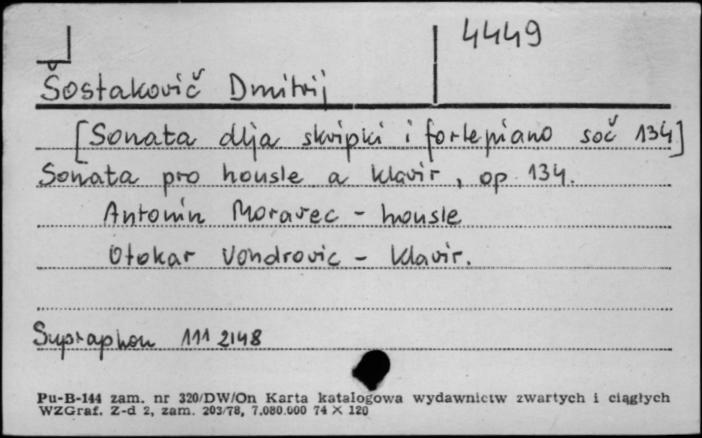 4449
Šostakovič Dmitrij
[Sonata dlja skripki i fortepiano soč 134]
Sonata pro housle a klavír, op 134.
Antonín Moravec - housle
Otokar Vondrovic - klavír.
Supraphon 111 2148
Pu-B-144 zam. nr 320/DW/On Karta katalogowa wydawnictw zwartych i ciągłych
WZGraf. Z-d 2, zam. 203/78, 7.080.000 74 X 120